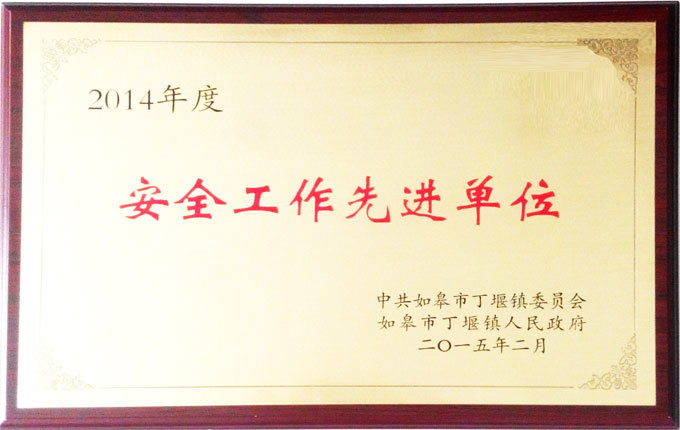 2014年度
安全工作先进单位
中共如皋市丁堰镇委员会
如皋市丁堰镇人民政府
二〇一五年二月